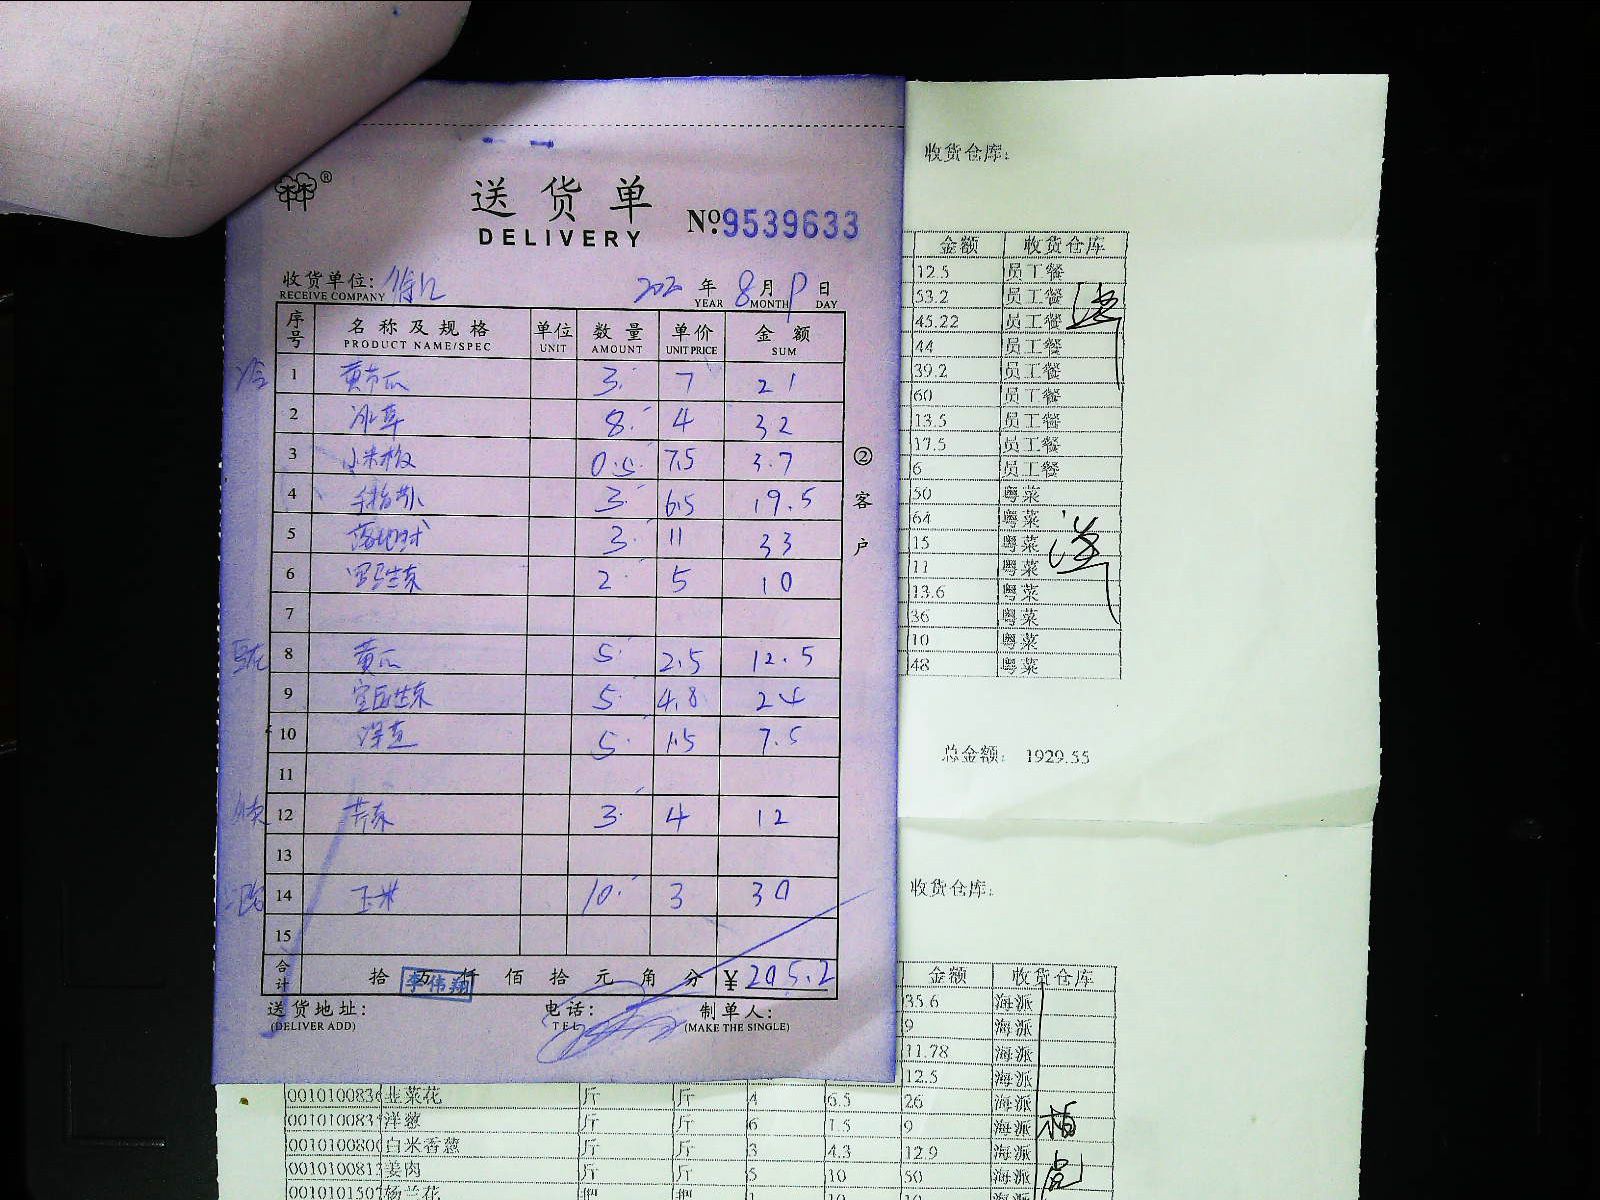 送货单
DELIVERY
®
№:9539633
收货单位:
RECEIVE COMPANY
202 年 8 月 日
YEAR MONTH DAY
序号 名称及规格 单位 数量 单价 金额
PRODUCT NAME/SPEC UNIT AMOUNT UNIT PRICE SUM
1 3 7 21
2 冰草 8 4 32
3 小米椒 0.5 7.5 3.7
4 3 6.5 19.5
5 3 11 33
6 罗马生菜 2 5 10
7
8 黄瓜 5 2.5 12.5
9 5 4.8 24
10 洋葱 5 1.5 7.5
11
12 3 4 12
13
14 玉米 10 3 30
15
合计 拾 万 仟 佰 拾 元 角 分 ¥205.2
李伟翔
送货地址: 电话: 制单人:
(DELIVER ADD) TEL (MAKE THE SINGLE)
②客户
收货仓库:
金额 收货仓库
12.5 员工餐
53.2 员工餐
45.22 员工餐
44 员工餐
39.2 员工餐
60 员工餐
13.5 员工餐
17.5 员工餐
6 员工餐
50 粤菜
64 粤菜
15 粤菜
11 粤菜
13.6 粤菜
36 粤菜
10 粤菜
48 粤菜
总金额: 1929.55
收货仓库:
金额 收货仓库
35.6 海派
9 海派
11.78 海派
12.5 海派
001010083 韭菜花 斤 斤 4 6.5 26 海派
001010083 洋葱 斤 斤 6 1.5 9 海派
001010080 白米香葱 斤 斤 3 4.3 12.9 海派
001010081 姜肉 斤 斤 5 10 50 海派